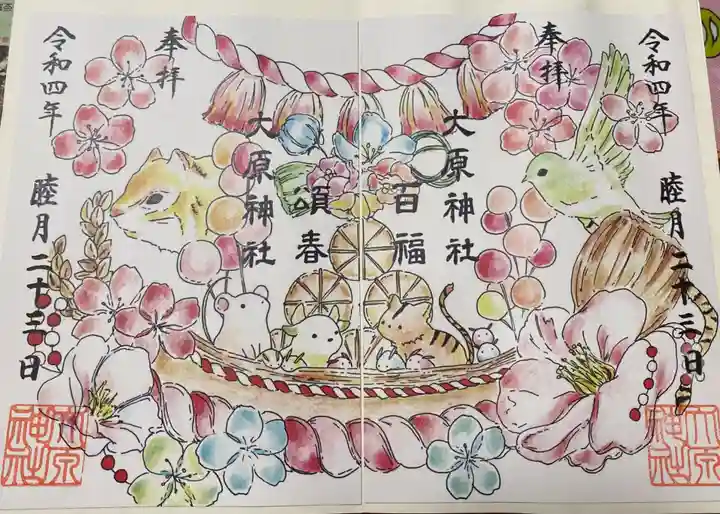 令和四年
奉拝
大原神社
百福
睦月二十三日
奉拝
令和四年
大原神社
頌春
睦月二十三日
大原神社
大原神社